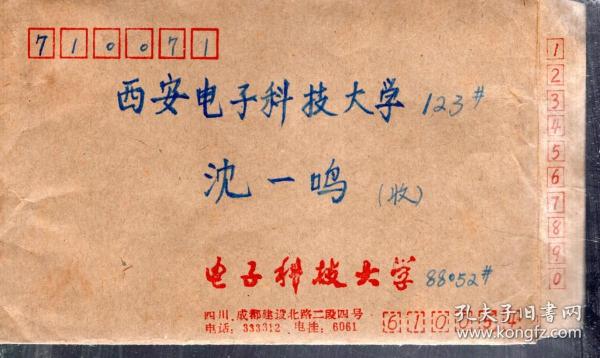 710071
西安电子科技大学 123#
沈一鸣 (收)
电子科技大学 88052#
四川.成都建设北路二段四号
电话：333312 电挂：6061
610054
1
2
3
4
5
6
7
8
9
0
孔夫子旧书网
www.kongfz.com